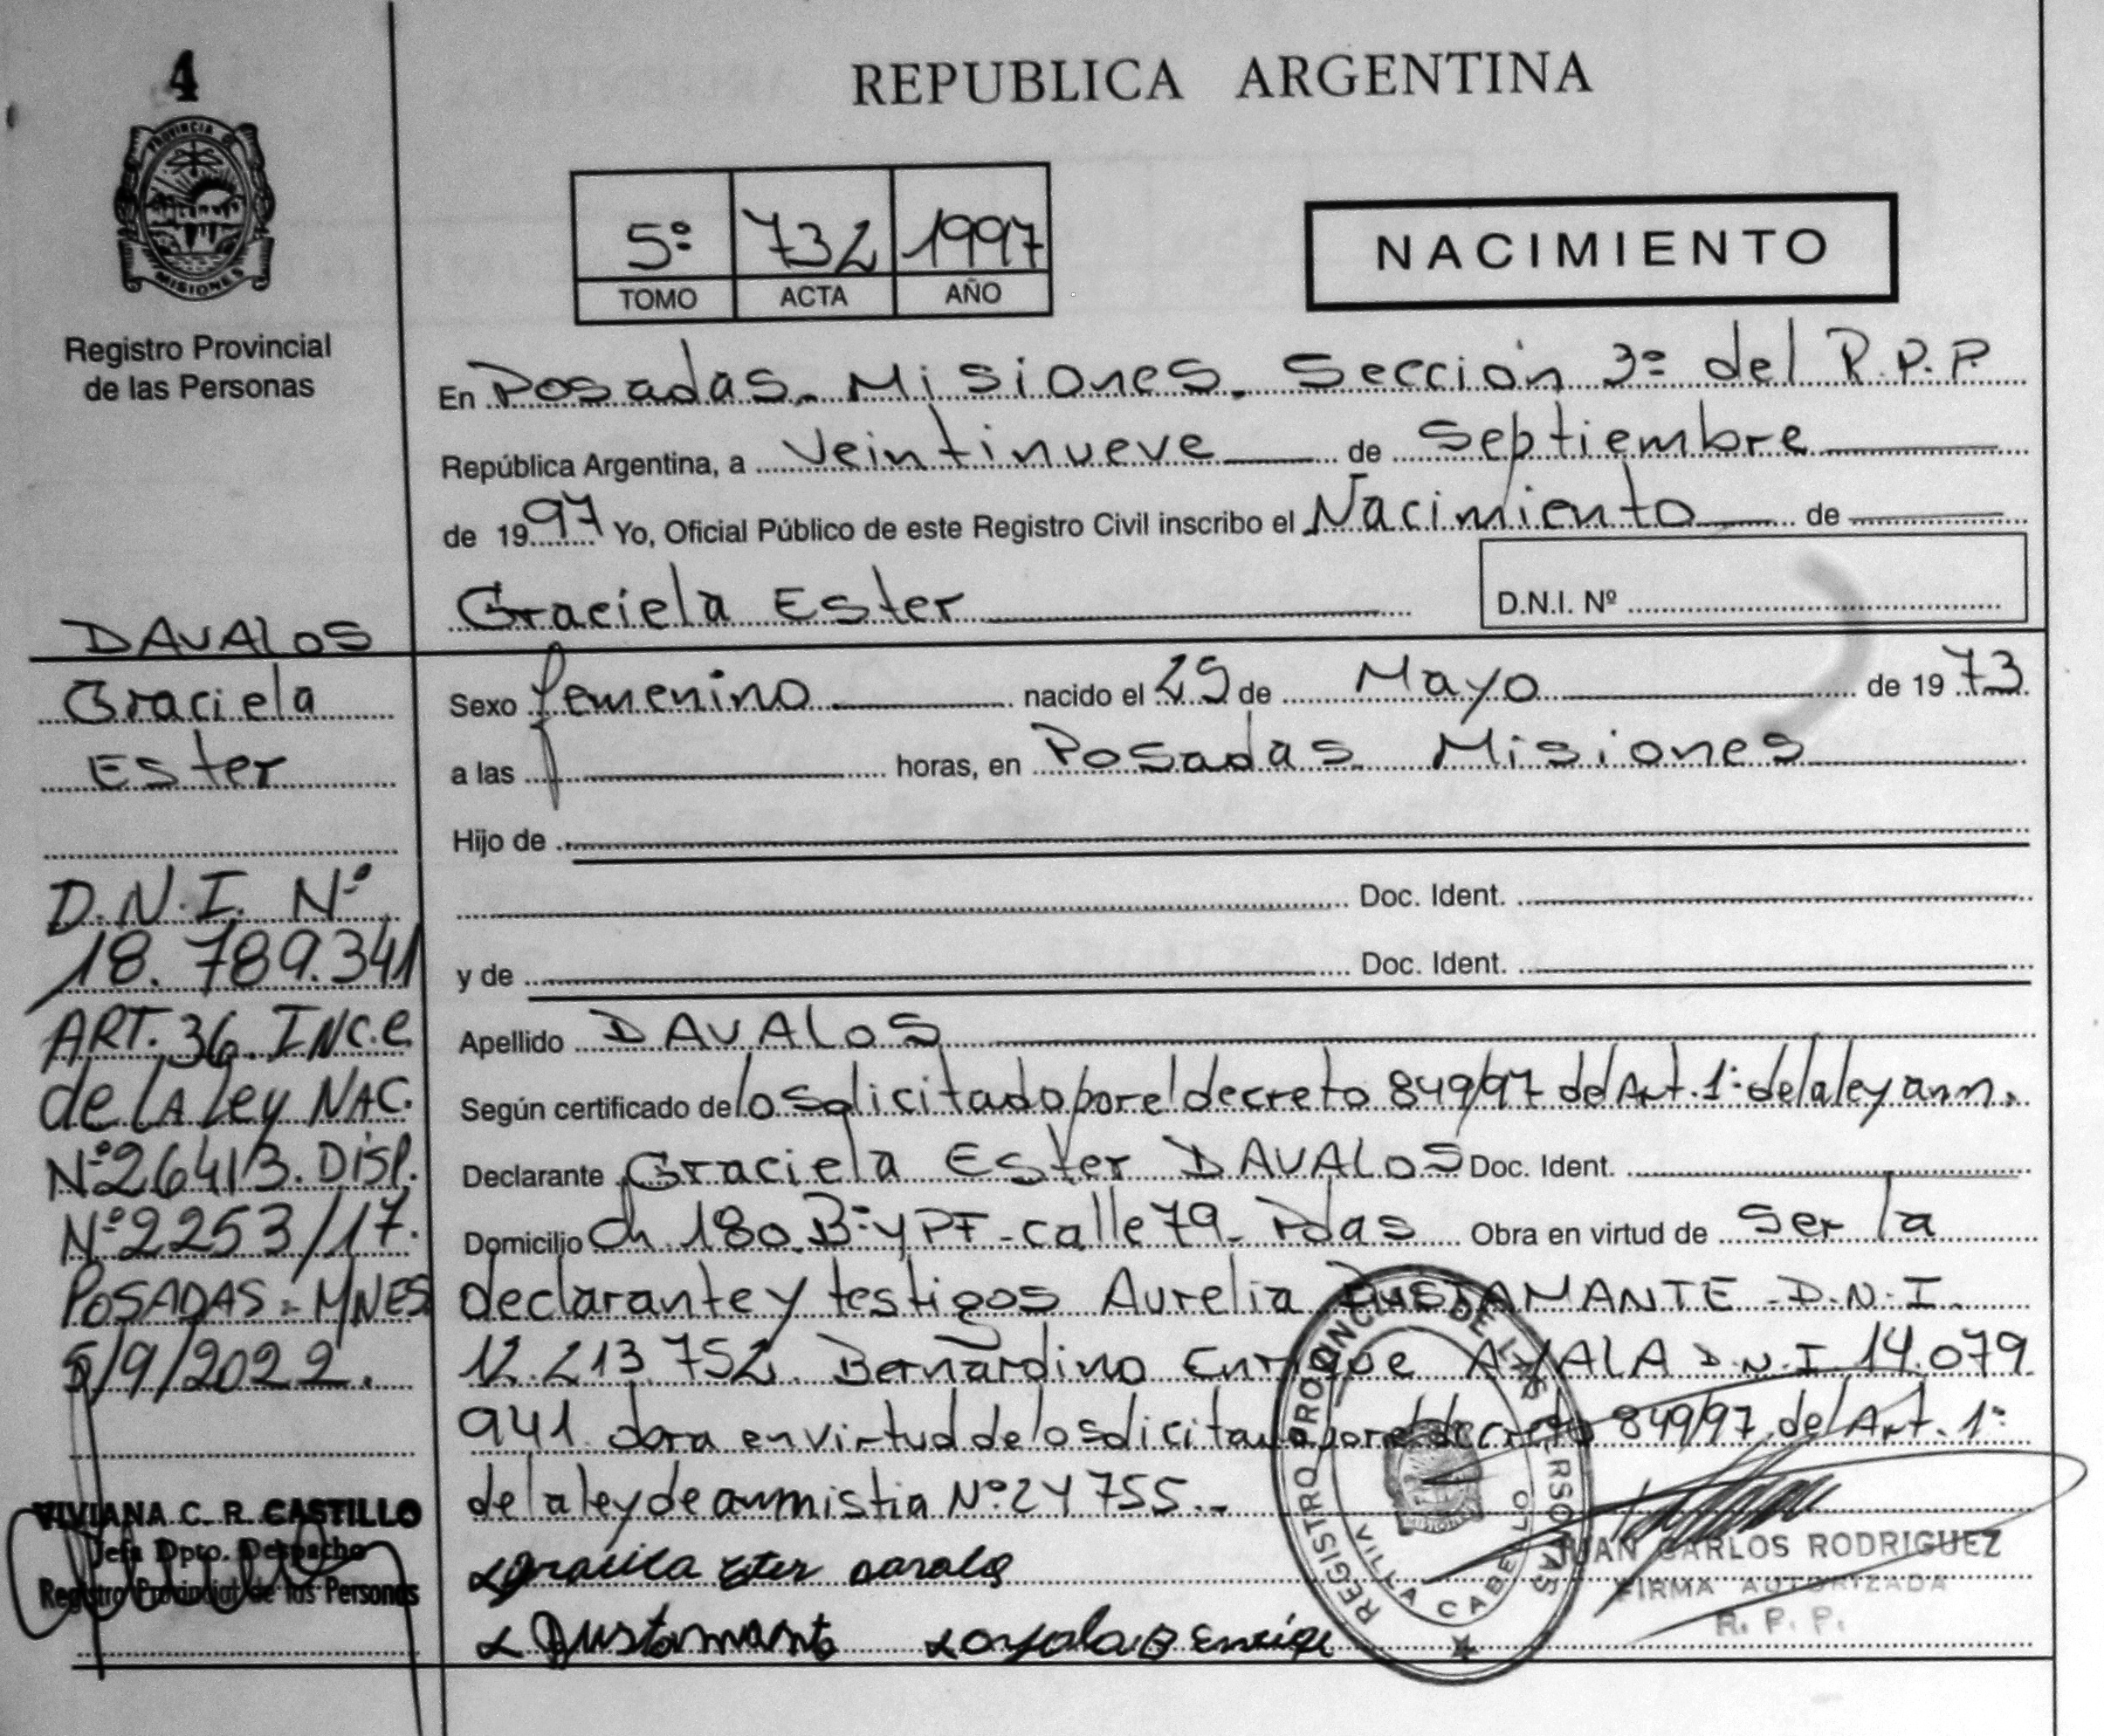 4
PROVINCIA DE
MISIONES
Registro Provincial
de las Personas
DAVALOS
Graciela
Ester
D.N.I. Nº
18.789.341
ART. 36. INC.e
de LA Ley NAC.
Nº26413. DISP.
Nº2253/17.
POSADAS - MNES
5/9/2022.
VIVIANA C. R. CASTILLO
Jefa Dpto. Despacho
Registro Provincial de las Personas
REPUBLICA ARGENTINA
5º 732 1997
TOMO ACTA AÑO
NACIMIENTO
En Posadas. Misiones. Sección 3º del R.P.P.
República Argentina, a veintinueve de Septiembre
de 1997 Yo, Oficial Público de este Registro Civil inscribo el Nacimiento de
Graciela Ester
D.N.I. Nº
Sexo femenino nacido el 25 de Mayo de 1973
a las horas, en Posadas Misiones
Hijo de
Doc. Ident.
y de Doc. Ident.
Apellido DAVALOS
Según certificado de lo solicitado por el decreto 849/97 del Art. 1º de la ley amn.
Declarante Graciela Ester DAVALOS Doc. Ident.
Domicilio Ch 180. Bº YPF - calle 79 - Pdas Obra en virtud de ser la
declarante y testigos Aurelia BUSTAMANTE - D.N.I.
12.213.752. Bernardino Enrique AYALA D.N.I 14.079
941. obra en virtud de lo solicitado por el decreto 849/97 del Art. 1º
de la ley de amnistia Nº 24755.-
Graciela Ester Davalos
Bustamante Ayala B Enrique
REGISTRO PROVINCIAL DE LAS PERSONAS
VILLA CABELLO
JUAN CARLOS RODRIGUEZ
FIRMA AUTORIZADA
R. P. P.